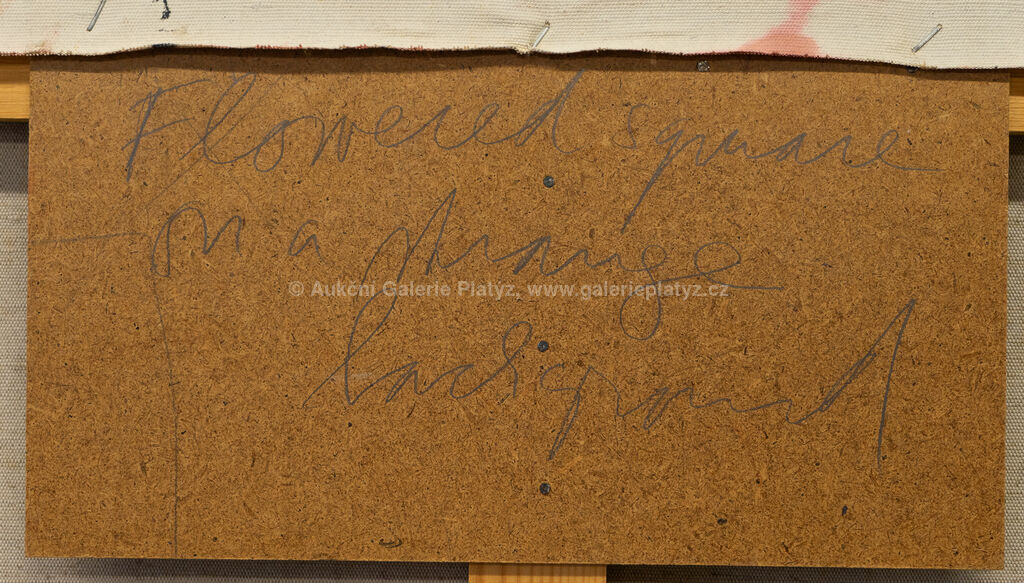 Flowered square
on a strange
© Aukční Galerie Platýz, www.galerieplatyz.cz
background